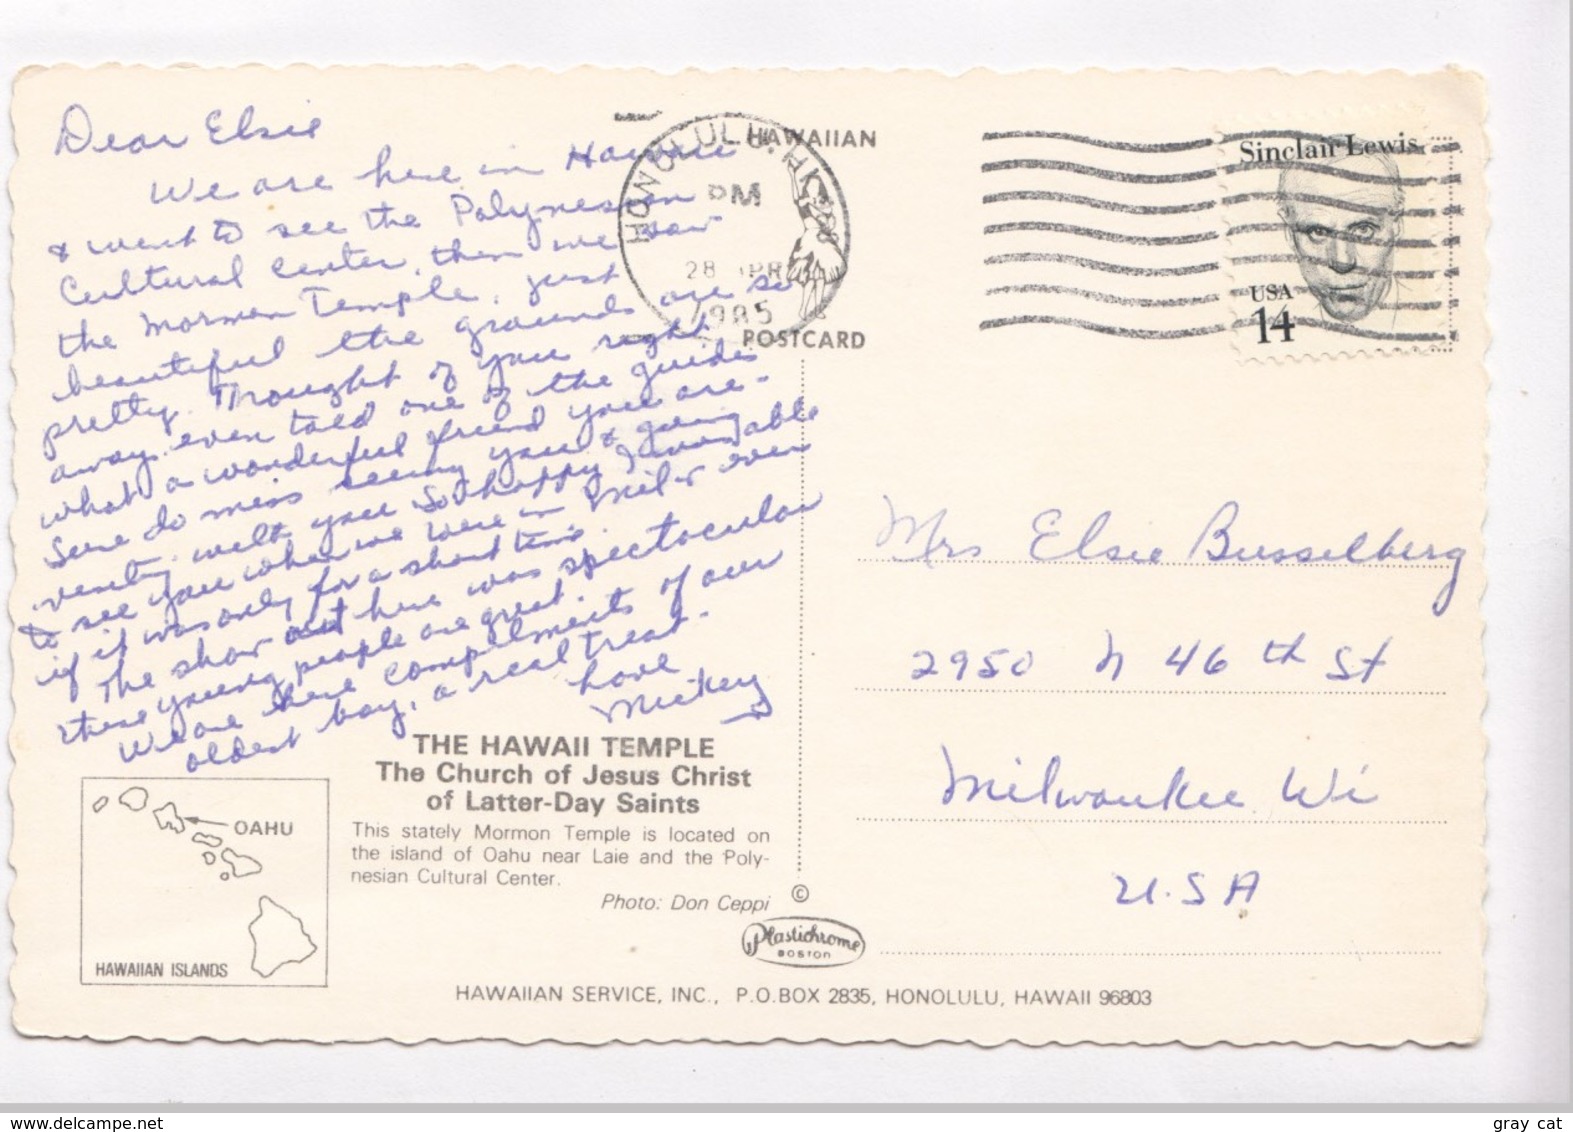 Dear Elsie
We are here in Hawaii
& went to see the Polynesian
Cultural Center, then we saw
the Mormon Temple, just
beautiful the grounds are so
pretty. Thought of you right
away. even told one of the guides
what a wonderful friend you are-
Sure do miss seeing you & going
visiting with you So happy I was able
to see you when we were in Mil- even
if it was only for a short time.
The show out here was spectacular
these young people are great.
We are here compliments of our
oldest boy, a real treat-
Love
Mickey
HONOLULU, HI
PM
28 APR
1985
HAWAIIAN
POSTCARD
Sinclair Lewis
USA
14
Mrs Elsie Busselberg
2950 N 46 th St
Milwaukee Wi
U.S A
THE HAWAII TEMPLE
The Church of Jesus Christ
of Latter-Day Saints
This stately Mormon Temple is located on
the island of Oahu near Laie and the Poly-
nesian Cultural Center.
Photo: Don Ceppi
OAHU
HAWAIIAN ISLANDS
©
Plastichrome
BOSTON
HAWAIIAN SERVICE, INC., P.O.BOX 2835, HONOLULU, HAWAII 96803
www.delcampe.net
gray cat